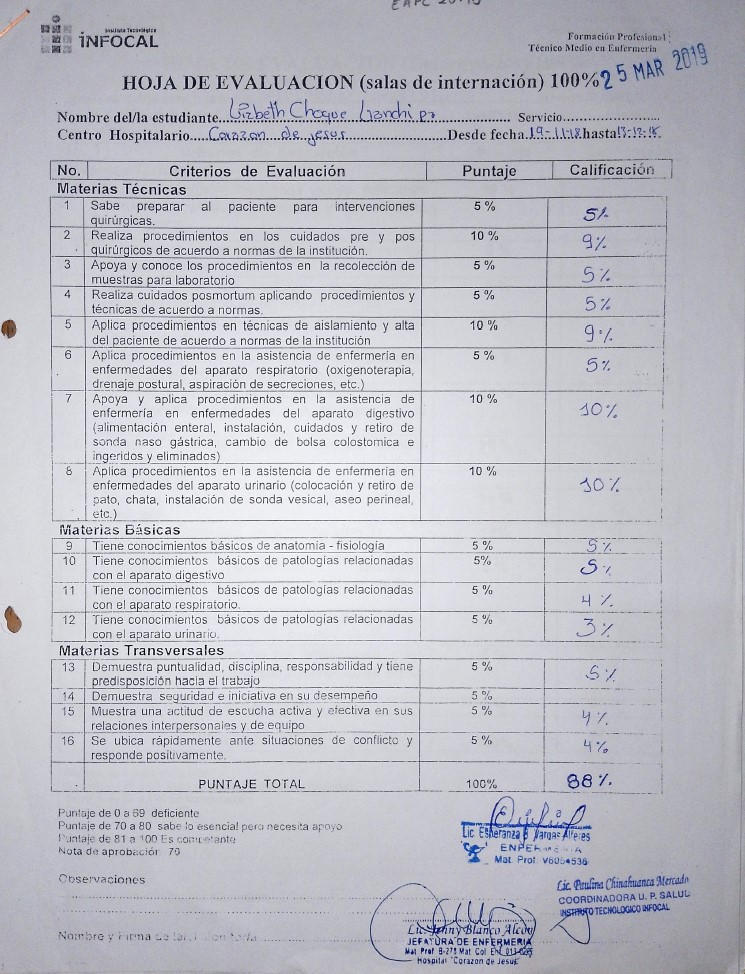 Instituto Tecnológico
INFOCAL
Formación Profesional
Técnico Medio en Enfermería
25 MAR 2019
HOJA DE EVALUACION (salas de internación) 100%
Nombre del/la estudiante Lizbeth Choque Servicio
Centro Hospitalario Corazon de jesus Desde fecha 19-11-18 hasta
No. Criterios de Evaluación Puntaje Calificación
Materias Técnicas
1 Sabe preparar al paciente para intervenciones quirúrgicas. 5 % 5%
2 Realiza procedimientos en los cuidados pre y pos quirúrgicos de acuerdo a normas de la institución. 10 % 9%
3 Apoya y conoce los procedimientos en la recolección de muestras para laboratorio 5 % 5%
4 Realiza cuidados posmortum aplicando procedimientos y técnicas de acuerdo a normas. 5 % 5%
5 Aplica procedimientos en técnicas de aislamiento y alta del paciente de acuerdo a normas de la institución 10 % 9%
6 Aplica procedimientos en la asistencia de enfermería en enfermedades del aparato respiratorio (oxigenoterapia, drenaje postural, aspiración de secreciones, etc.) 5 % 5%
7 Apoya y aplica procedimientos en la asistencia de enfermería en enfermedades del aparato digestivo (alimentación enteral, instalación, cuidados y retiro de sonda naso gástrica, cambio de bolsa colostomica e ingeridos y eliminados) 10 % 10%
8 Aplica procedimientos en la asistencia de enfermería en enfermedades del aparato urinario (colocación y retiro de pato, chata, instalación de sonda vesical, aseo perineal, etc.) 10 % 10%
Materias Básicas
9 Tiene conocimientos básicos de anatomía - fisiología 5 % 5%
10 Tiene conocimientos básicos de patologías relacionadas con el aparato digestivo 5% 5%
11 Tiene conocimientos básicos de patologías relacionadas con el aparato respiratorio. 5 % 4%
12 Tiene conocimientos básicos de patologías relacionadas con el aparato urinario. 5 % 3%
Materias Transversales
13 Demuestra puntualidad, disciplina, responsabilidad y tiene predisposición hacia el trabajo 5 % 5%
14 Demuestra seguridad e iniciativa en su desempeño 5 %
15 Muestra una actitud de escucha activa y efectiva en sus relaciones interpersonales y de equipo 5 % 4%
16 Se ubica rápidamente ante situaciones de conflicto y responde positivamente. 5 % 4%
PUNTAJE TOTAL 100% 88%
Puntaje de 0 a 69 deficiente
Puntaje de 70 a 80 sabe lo esencial pero necesita apoyo
Puntaje de 81 a 100 Es competente
Nota de aprobación 70
Lic. Esperanza Vargas
ENFERMERIA
Mat. Prof.
Observaciones
Lic. Paulina Chinahuanca Mercado
COORDINADORA U. P. SALUD
INSTITUTO TECNOLOGICO INFOCAL
Nombre y Firma
Lic. Jenny Blanco Alcon
JEFATURA DE ENFERMERIA
Mat Prof B-278 Mat Col Enf
Hospital "Corazon de Jesus"